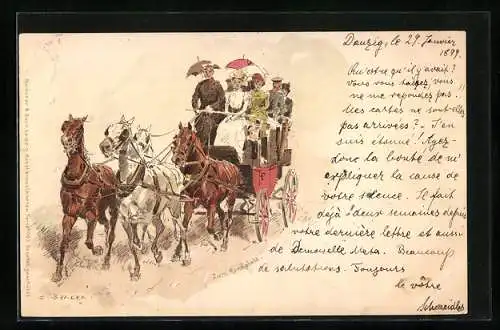 Danzig, le 29 Janvier
1899.
Qu'est ce qu'il y avait?
Vous vous taisez, vous
ne me repondez pas.
Mes cartes ne sont-elles
pas arrivées? - J'en
suis étonné! Ayez-
donc la bonté de m'
expliquer la cause de
votre silence. Il fait
déjà deux semaines depuis
votre dernière lettre et aussi
de Demoiselle Meta. Beaucoup
de salutations. Toujours
le vôtre
Zum Rennplatz.